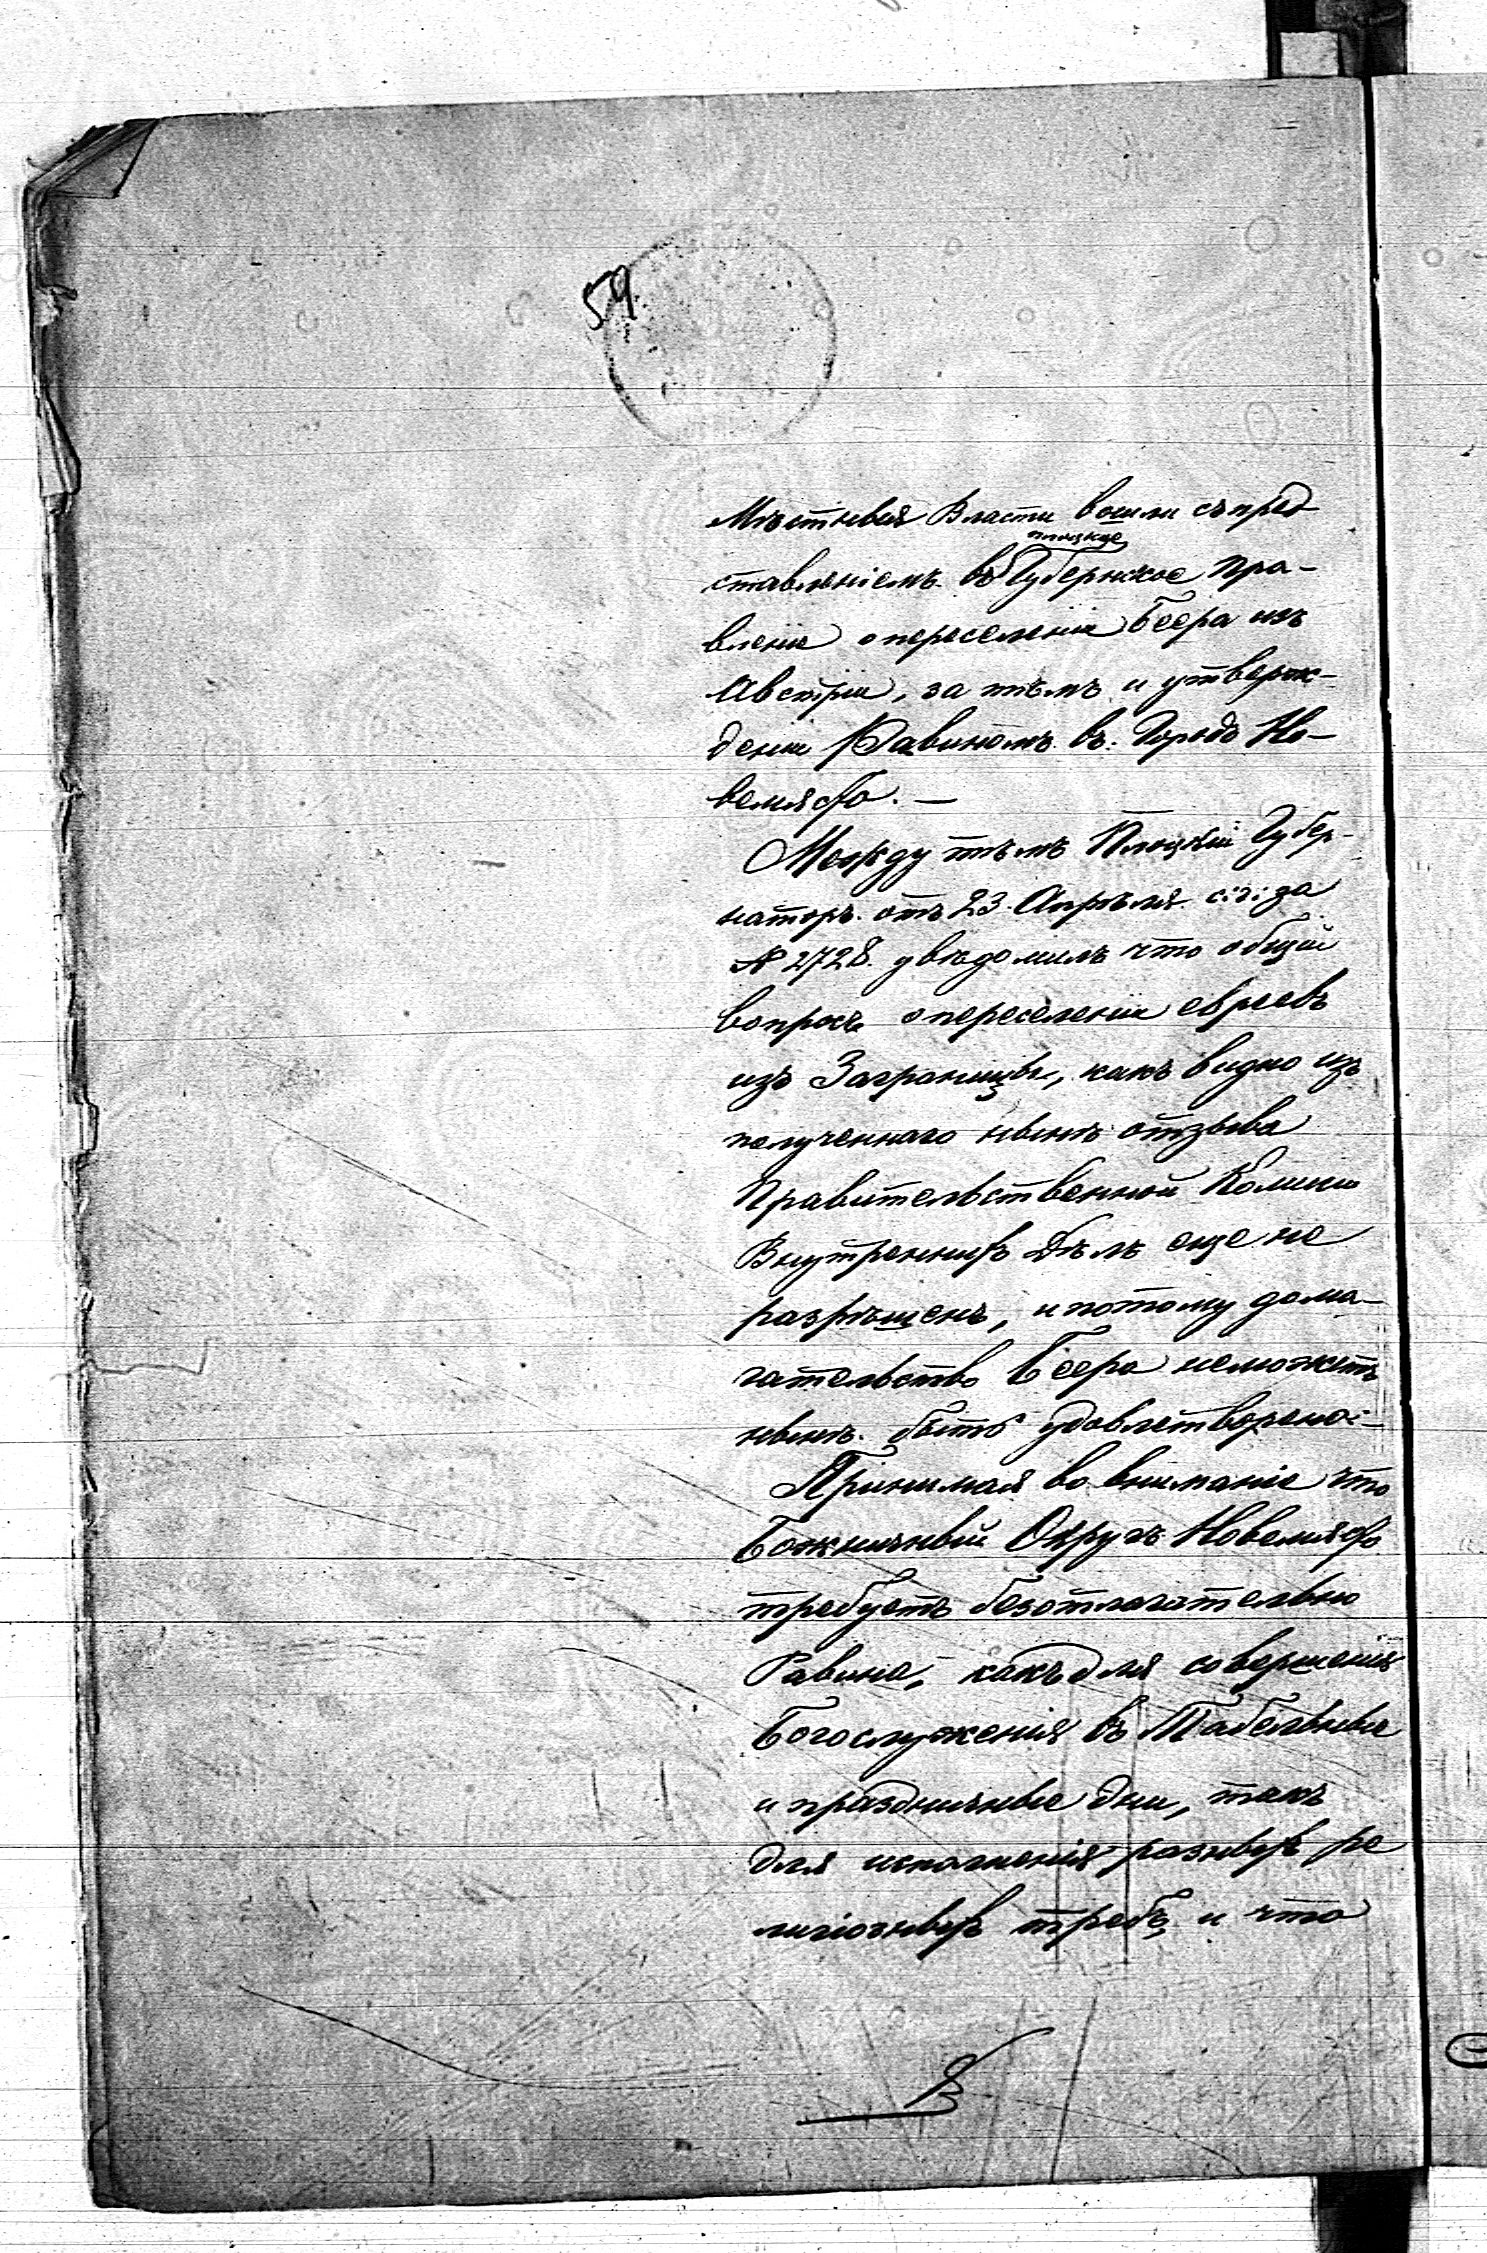 59.
Мѣстныя Власти вошли съ пред
плоцкое
ставленіемъ въ Губернское Пра-
вленіе о переселеніи Беера изъ
Австріи, за тѣмъ и утверж-
деніи Равиномъ въ Городѣ Но-
вемясто. —
Между тѣмъ Плоцкій Губер-
наторъ отъ 23 Апрѣля с: г: за
№ 2728 увѣдомилъ что общій
вопросъ о переселеніи евреевъ
изъ Заграницы, какъ видно изъ
полученнаго нынѣ отзыва
Правительственной Комисіи
Внутреннихъ Дѣлъ еще не
разрѣшенъ, и потому дома-
гательство Беера неможетъ
нынѣ быть удовлетворено: –
Принимая во вниманіе что
Божничный Округъ Новемясто
требуетъ безотлагательно
Равина, какъ для совершенія
Богослуженія въ Табельные
и праздничные дни, такъ
для исполненія разныхъ ре
лигіозныхъ требъ и что